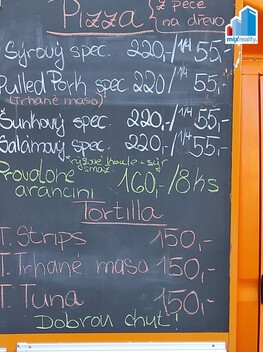 Pizza { z pece na dřevo
mixreality
Sýrový spec. 220,-/ 1/4 55,-
Pulled Pork spec 220/ 1/4 55,-
(Trhané maso)
Šunkový spec. 220,-/ 1/4 55,-
Salámový spec. 220,-/ 1/4 55,-
rýžové koule - sýr
smaž
Provolone arancini 160,-/8ks
Tortilla
T. Strips 150,-
T. Trhané maso 150,-
T. Tuna 150,-
Dobrou chuť!